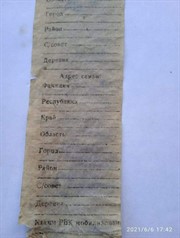 Город
Район
С/совет
Деревня
Адрес семьи
Фамилия
Республика
Край
Область
Город
Район
С/совет
Деревня
Каким РВК мобил
2021/6/6 17:42